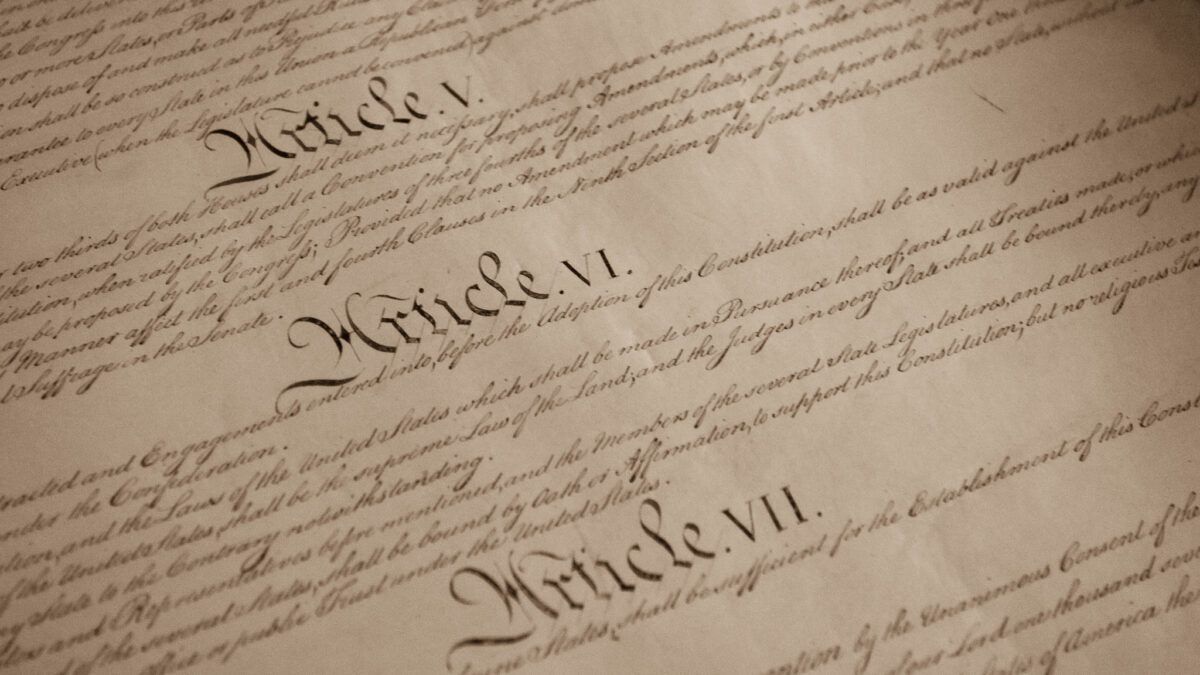 be deliver
the Congress into this
or more States, or Parts of
dispose of and make all needful
shall be so construed as to Prejudice any Cla
rantee to every State in this Union a Republican
Executive (when the Legislature cannot be convened) against
Article. V.
two thirds of both Houses shall deem it necessary, shall propose Amendments to
the several States, shall call a Convention for proposing Amendments, which, in either Case,
titution, when ratified by the Legislatures of three fourths of the several States, or by Conventions in
ay be proposed by the Congress; Provided that no Amendment which may be made prior to the Year One
Manner affect the first and fourth Clauses in the Ninth Section of the first Article; and that no State, without
Suffrage in the Senate.
Article. VI.
tracted and Engagements entered into, before the Adoption of this Constitution, shall be as valid against the United
under the Confederation.
tion, and the Laws of the United States which shall be made in Pursuance thereof; and all Treaties made, or whi
of the United States, shall be the supreme Law of the Land; and the Judges in every State shall be bound thereby, any
ny State to the Contrary notwithstanding.
tors and Representatives before mentioned, and the Members of the several State Legislatures, and all executive an
d of the several States, shall be bound by Oath or Affirmation, to support this Constitution; but no religious Tes
office or public Trust under the United States.
Article. VII.
States, shall be sufficient for the Establishment of this Const
vention by the Unanimous Consent of the
of our Lord one thousand seven
States of America the